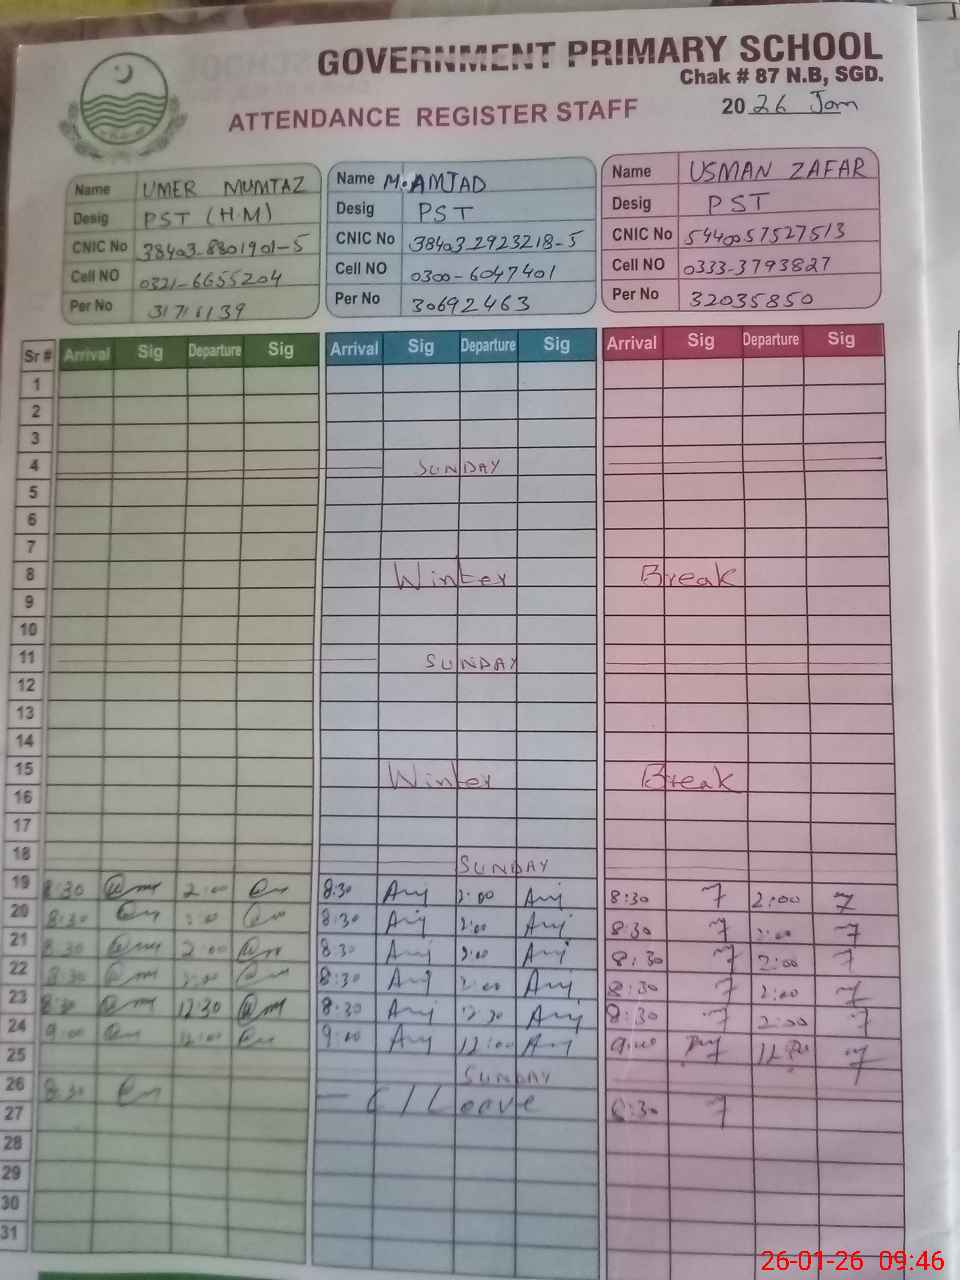 GOVERNMENT PRIMARY SCHOOL
Chak # 87 N.B, SGD.
ATTENDANCE REGISTER STAFF
20 26 Jan
Name UMER MUMTAZ
Desig PST (H.M)
CNIC No 38403-8801901-5
Cell NO 0321-6655204
Per No
Name M.AMJAD
Desig PST
CNIC No 38403-2923218-5
Cell NO 0300-6047401
Per No 30692463
Name USMAN ZAFAR
Desig PST
CNIC No 5440057527513
Cell NO 0333-3793827
Per No 32035850
Sr # Arrival Sig Departure Sig Arrival Sig Departure Sig Arrival Sig Departure Sig
1
2
3
4 SUNDAY
5
6
7
8 Winter Break
9
10
11 SUNDAY
12
13
14
15 Winter Break
16
17
18 SUNDAY
19 8:30 2:00 8:30 2:00 8:30 2:00
20 8:30 2:00 8:30 2:00 8:30 2:00
21 8:30 2:00 8:30 2:00 8:30 2:00
22 8:30 2:00 8:30 2:00 8:30 2:00
23 8:30 12:30 8:30 12:30 8:30 2:00
24 9:00 12:00 9:00 12:00 9:00
25 SUNDAY
26 8:30 Leave 8:30
27
28
29
30
31
26-01-26 09:46